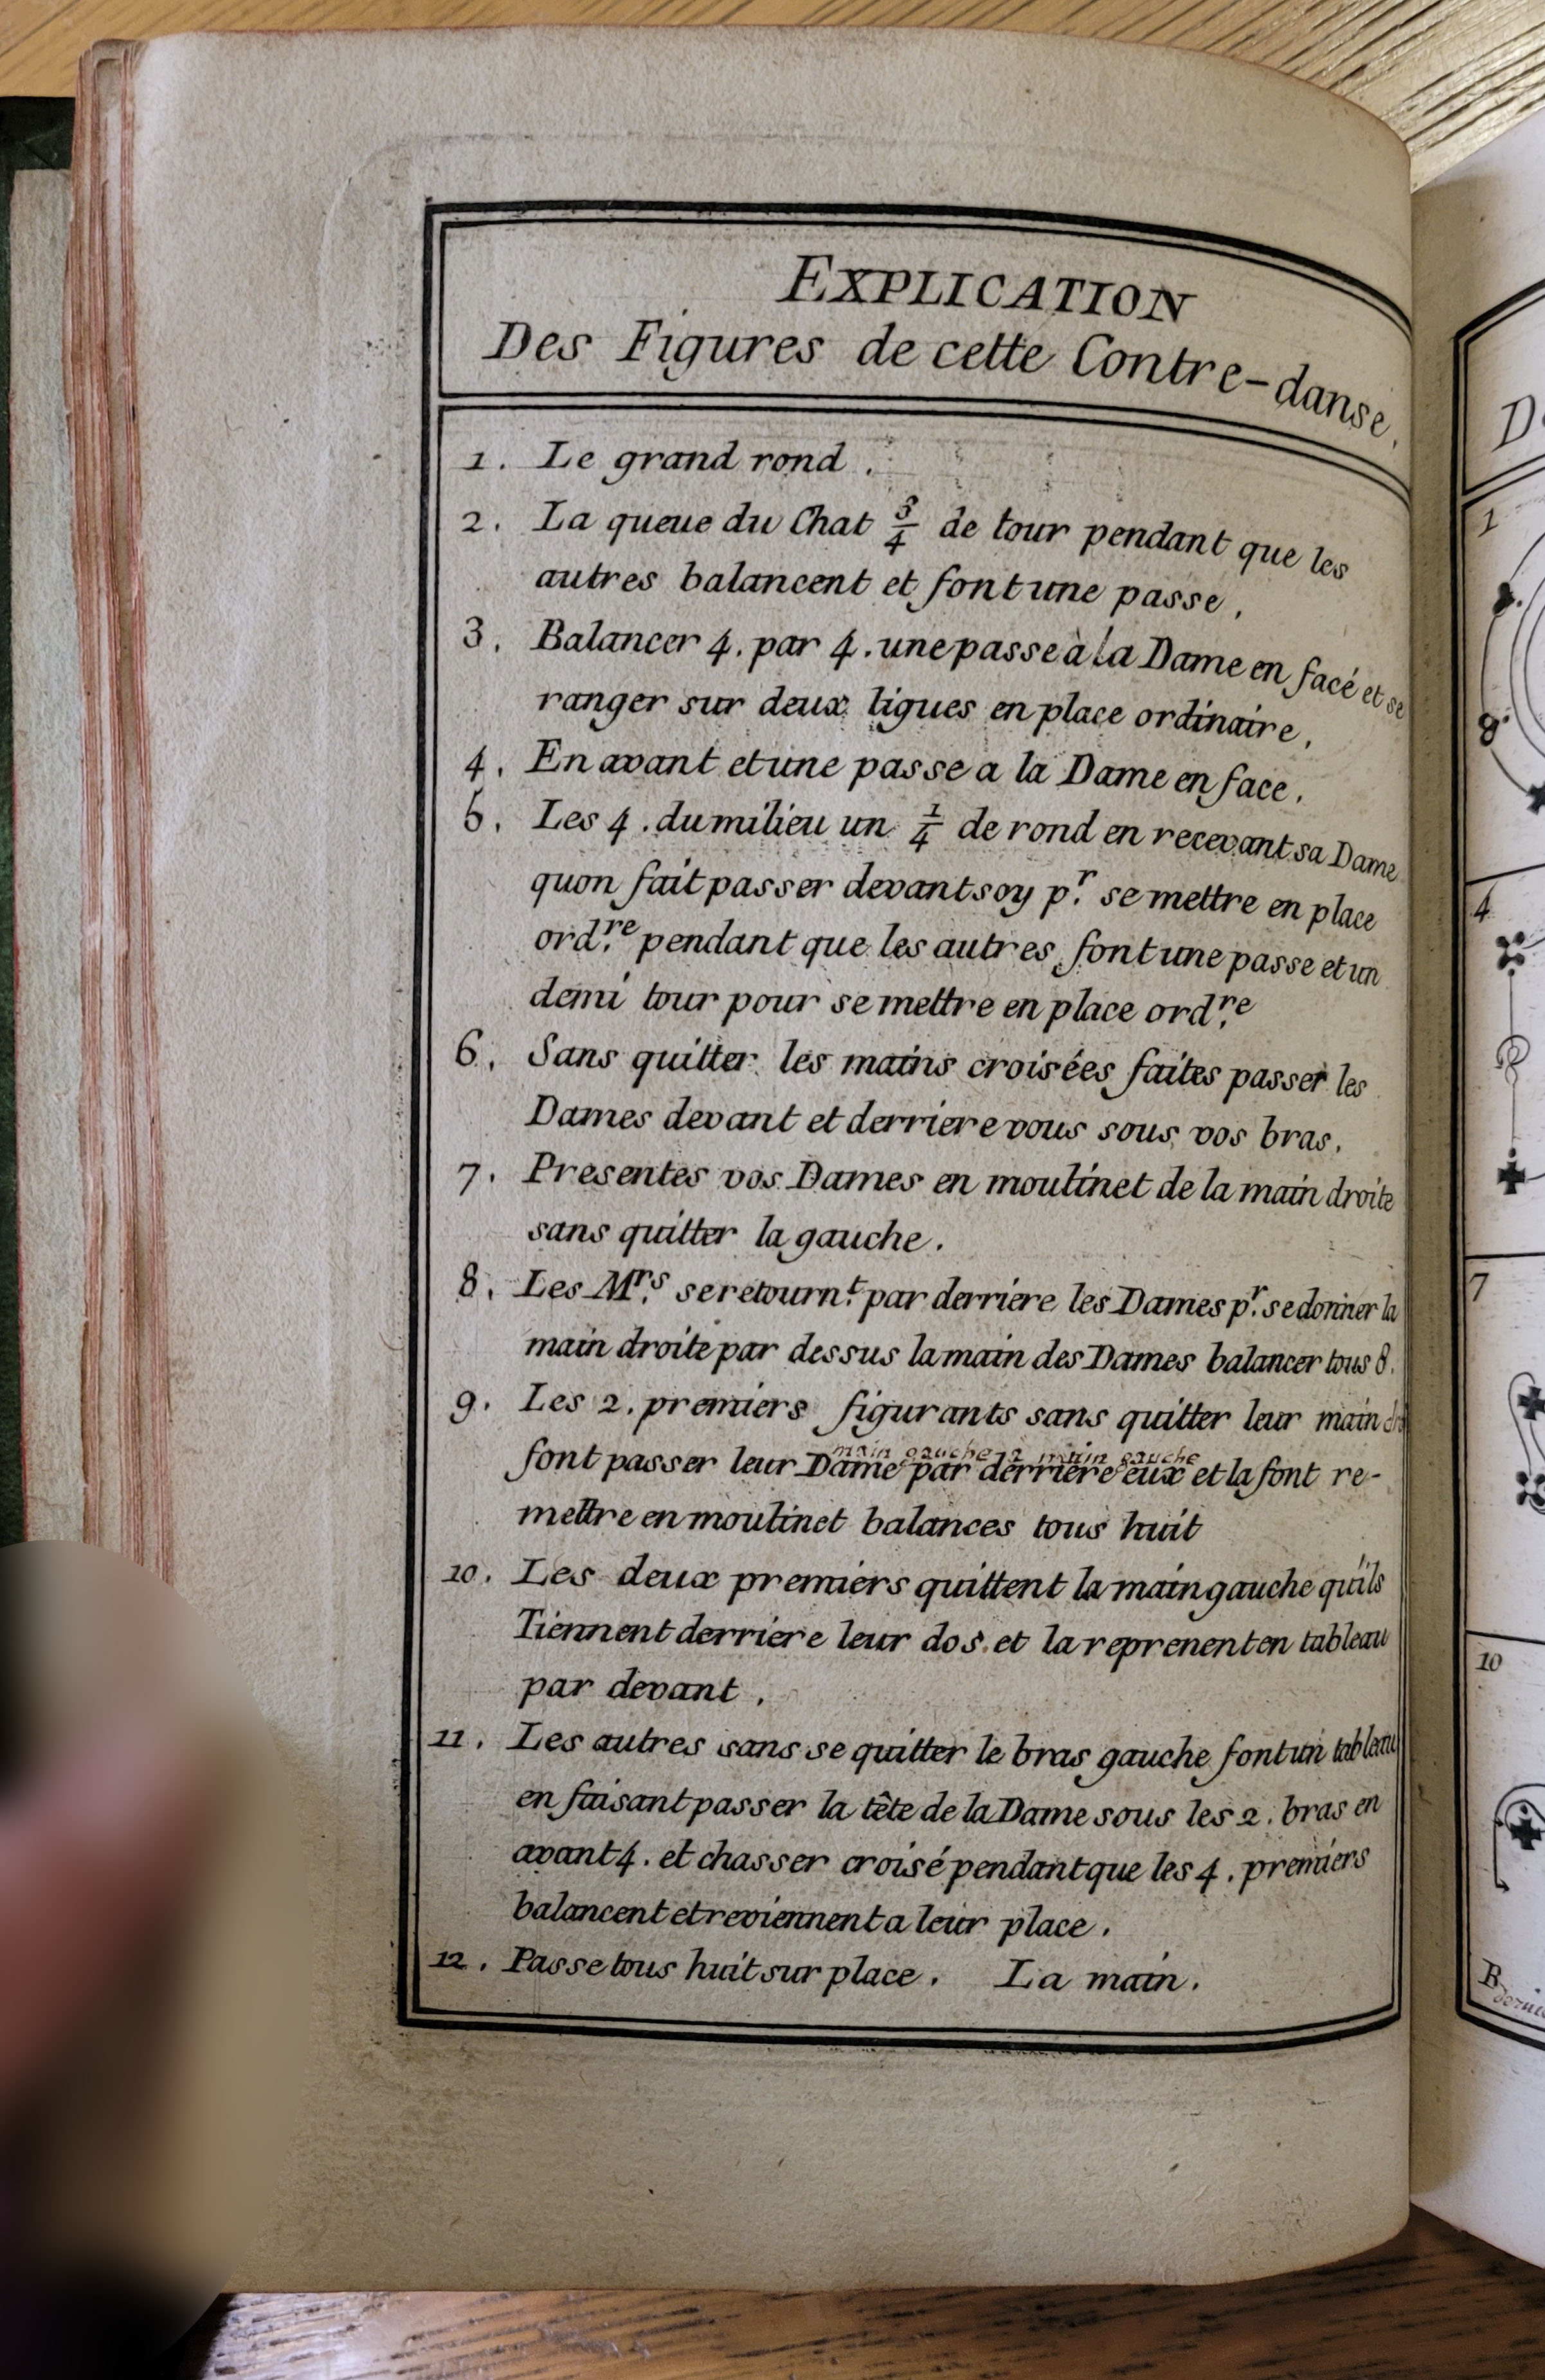 EXPLICATION
Des Figures de cette Contre-danse.
1. Le grand rond.
2. La queue du Chat 3/4 de tour pendant que les
autres balancent et font une passe,
3. Balancer 4. par 4. une passe à la Dame en facé et se
ranger sur deux ligues en place ordinaire,
4. En avant et une passe a la Dame en face.
5. Les 4. du milieu un 1/4 de rond en recevant sa Dame
quon fait passer devant soy pr. se mettre en place
ord.re pendant que les autres font une passe et un
demi tour pour se mettre en place ord.re
6. Sans quitter les mains croisées faites passer les
Dames devant et derriere vous sous vos bras.
7. Presentes vos Dames en moulinet de la main droite
sans quitter la gauche.
8. Les Mrs. se retournt. par derriere les Dames pr. se donner la
main droite par dessus la main des Dames balancer tous 8.
9. Les 2. premiers figurants sans quitter leur main
main gauche a main gauche
font passer leur Dame par derriere eux et la font re-
mettre en moulinet balances tous huit
10. Les deux premiers quittent la main gauche qu'ils
Tiennent derriere leur dos et la reprenent en tableau
par devant.
11. Les autres sans se quitter le bras gauche font un tableau
en faisant passer la tête de la Dame sous les 2. bras en
avant 4. et chasser croisé pendant que les 4. premiers
balancent et reviennent a leur place.
12. Passe tous huit sur place. La main.
D
1
4
7
10